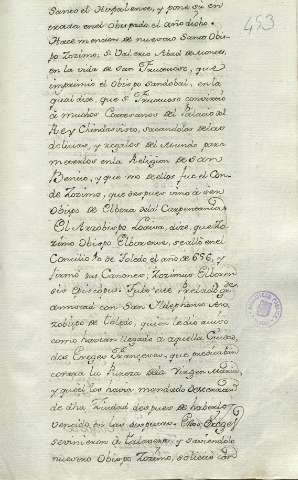 453
Santo el Hispalense, y pone su en
trada en el Obispado el año dicho.
Hace mencion de nuestro Santo Obis-
po Zozimo, S. Valerio Abad de
en la vida de San Fructuoso, que
imprimió el Obispo Sandobal, en la
qual dice, que S. Fructuoso convirtió
a muchos Cortesanos del Palacio del
Rey Chindasvinto, sacandolos de las
delicias, y regalos del Mundo para
meterlos en la Religion de San
Benito, y que uno de ellos fue el Con-
de Zozimo, que despues vino a ser
Obispo de Elbora de la Carpentania.
El Arzobispo Loaisa, dice, que Zo-
zimo Obispo Elborense, se alló en el
Concilio de Toledo, el año de 656, y
firmó sus Canones: Zozimus Elboren-
sis Episcopus. Tubo este Prelado gde
amistad con San Ildephonso Arz
zobispo de Toledo, quien le dio aviso
como havian llegado a aquella Ciudad
dos Ereges Franceses, que predicaban
contra la Pureza de la Virgen Maria,
y que él los havia mandado desterrar
de dha Ciudad despues de haberlos
vencido en las disputas. Estos Ereges
se vinieron a Talavera, y saviendolo
nuestro Obispo Zozimo, solicitó con